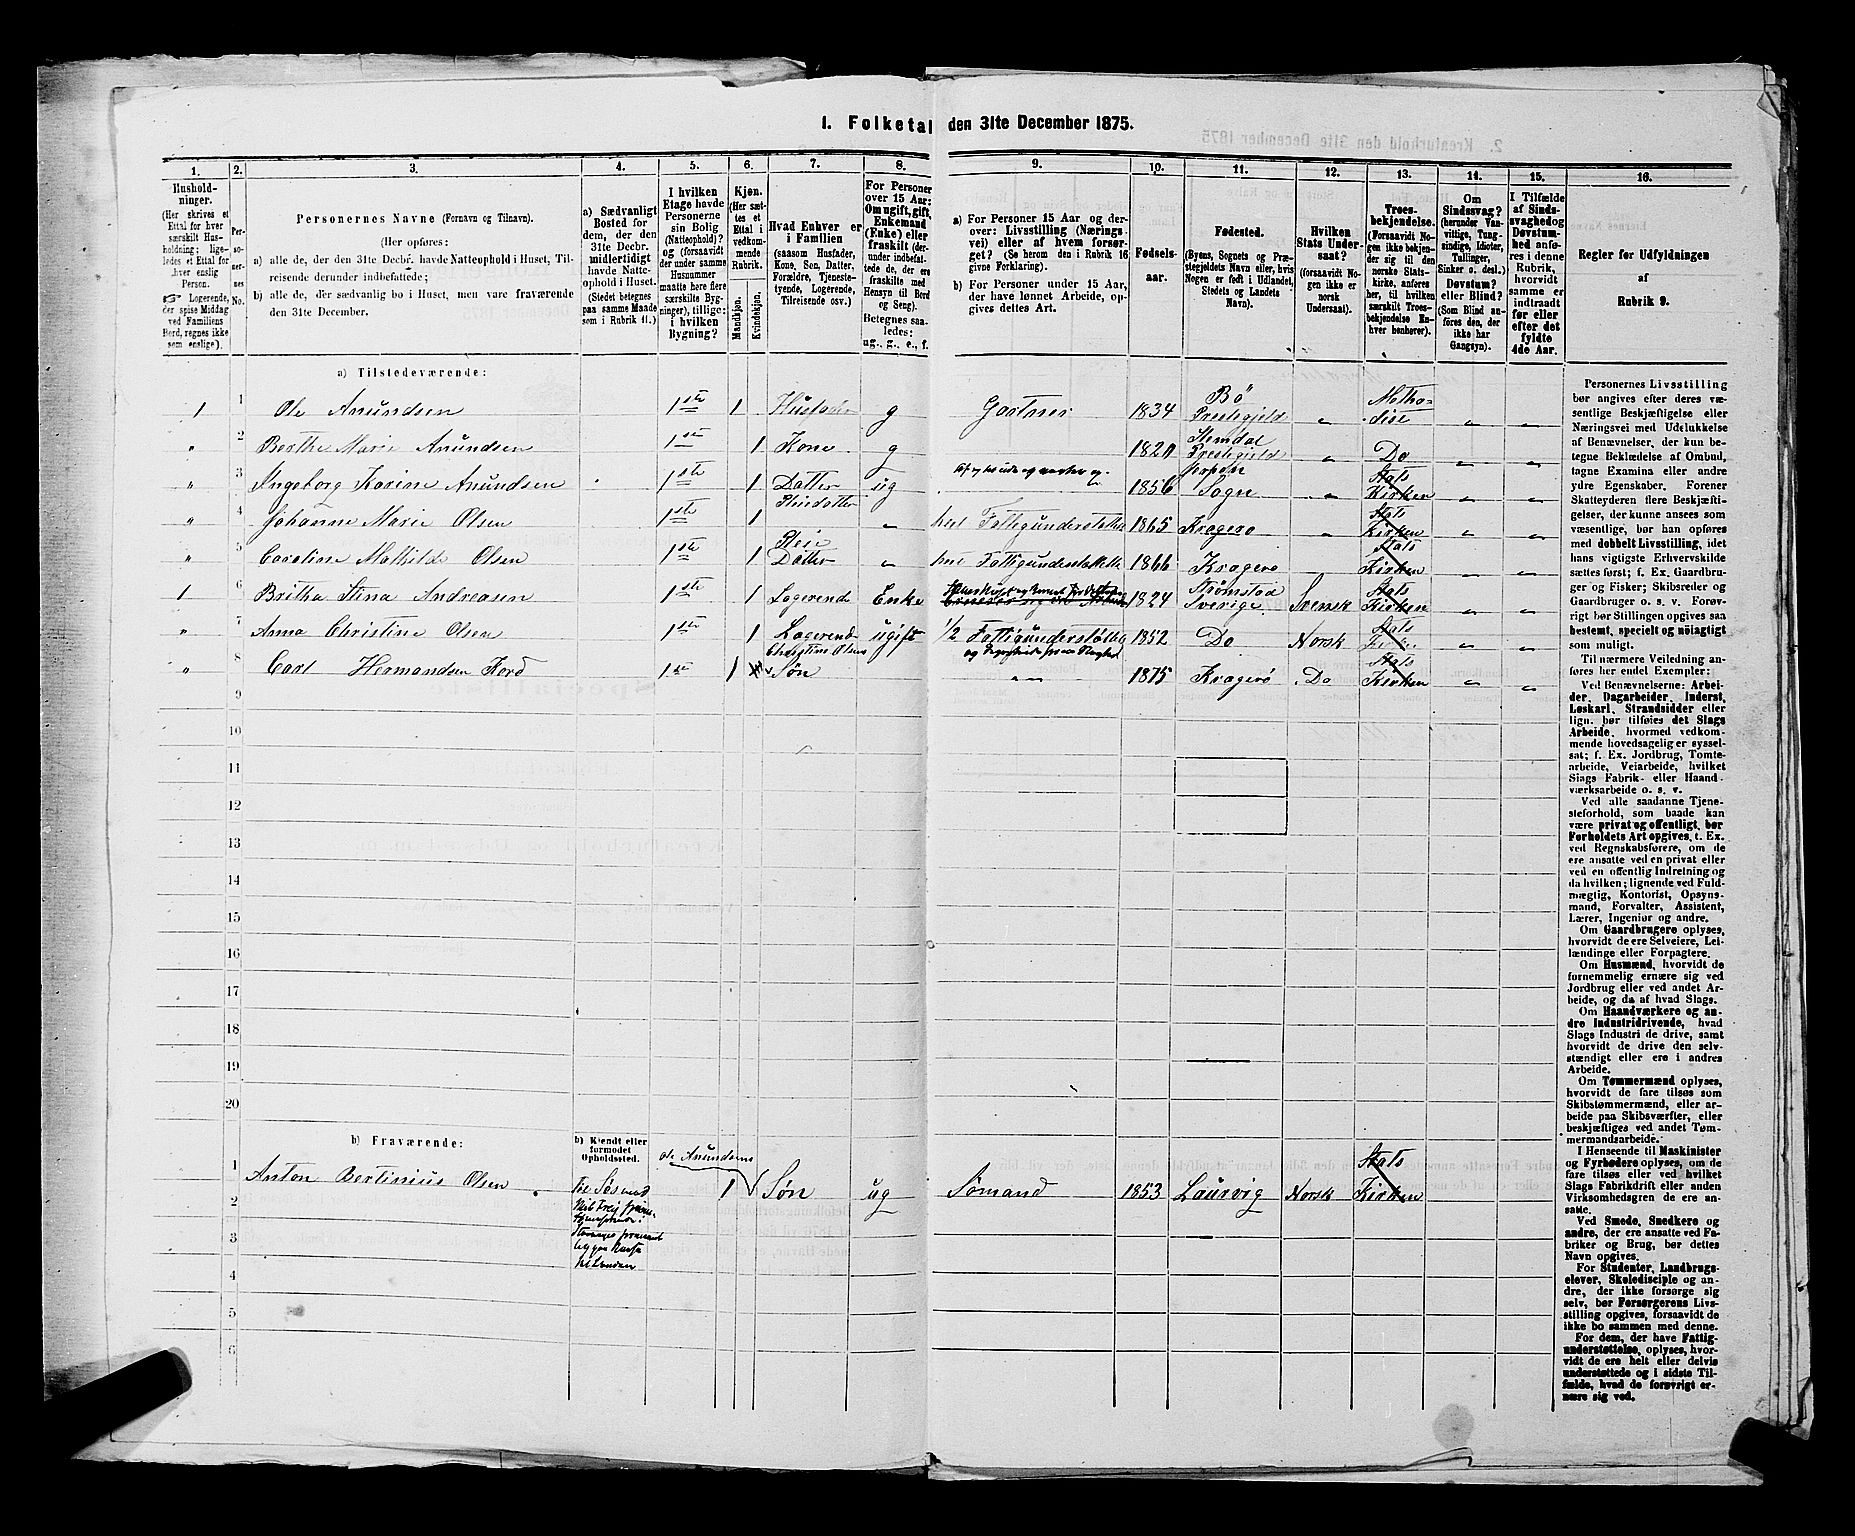 1. Folketal den 31te December 1875.
2. Kreaturhold den 31te December 1875
1. 2. 3. 4. 5. 6. 7. 8. 9. 10. 11. 12. 13. 14. 15. 16.
Hushold-
ninger.
(Her skrives et
Ettal for hver
særskilt Hus-
holdning; lige-
ledes et Ettal for
hver enslig
Person.
☞ Logerende,
der spise Middag
ved Familiens
Bord, regnes ikke
som enslige).
Per-
so-
ner-
nes
No.
Personernes Navne (Fornavn og Tilnavn).
(Her opføres:
a) alle de, der den 31te Decbr. havde Natteophold i Huset, Til-
reisende derunder indbefattede;
b) alle de, der sædvanlig bo i Huset, men vare fraværende
den 31te December.
a) Sædvanligt
Bosted for
dem, der den
31te Decbr.
midlertidigt
havde Natte-
ophold i Huset.
(Stedet betegnes
paa samme Maade
som i Rubrik 11.)
I hvilken
Etage havde
Personerne
sin Bolig
(Natteophold)?
(forsaavidt
der under samme
Husnummer
maatte høre flere
særskilte Byg-
ninger), tillige:
i hvilken
Bygning?
Kjøn.
(Her sæt-
tes et
Ettal i
vedkom-
mende
Rubrik.
Mandkjøn.
Kvindekjøn.
Hvad Enhver er
i Familien
(saasom Husfader,
Kone, Søn, Datter,
Forældre, Tjeneste-
tyende, Logerende,
Tilreisende osv.)
For Personer
over 15 Aar:
Om ugift, gift,
Enkemand
(Enke) eller
fraskilt (der-
under indbefat-
tede de, der ere
fraskilte med
Hensyn til Bord
og Seng).
Betegnes saa-
ledes:
ug., g., e., f.
a) For Personer 15 Aar og der-
over: Livsstilling (Nærings-
vei) eller af hvem forsør-
get? (Se herom den i Rubrik 16
givne Forklaring).
b) For Personer under 15 Aar,
der have lønnet Arbeide, op-
gives dettes Art.
Fødsels-
aar.
Fødested.
(Byens, Sognets og Præ-
stegjeldets Navn eller, hvis
Nogen er født i Udlandet,
Stedets og Landets
Navn).
Hvilken
Stats Under-
saat?
(forsaavidt No-
gen ikke er
norsk
Undersaat).
Troes-
bekjendelse.
(Forsaavidt No-
gen ikke bekjen-
der sig til den
norske Stats-
kirke, anføres
her, til hvilken
særskilt Troes-
bekjendelse En-
hver benhører).
Om
Sindssvag?
(herunder Van-
vittige, Tung-
sindige, Idioter,
Tullinger,
Sinker o. desl.)
Døvstum?
eller Blind?
(Som Blind an-
føres den, der
ikke har
Gangsyn).
I Tilfælde
af Sinds-
svaghed og
Døvstum-
hed anfø-
res i denne
Rubrik,
hvorvidt
samme er
indtraadt
før eller
efter det
fyldte
4de Aar.
Regler for Udfyldningen
af
Rubrik 9.
a) Tilstedeværende:
1 1 Ole Anundsen 1ste 1 Husfader g Gartner 1834 Bø Prestegjeld Methodist
" 2 Berthe Marie Anundsen 1ste 1 Kone g 1820 Prestegjeld Do
" 3 Ingeborg Karine Anundsen 1ste 1 Datter ug 1856 Sogn Stats Kirken
" 4 Johanne Marie Olsen 1ste 1 Pleiedatter Fattigunderstøttelse 1865 Kragerø Stats Kirken
" 5 Caroline Mathilde Olsen 1ste 1 Pleie Datter Fattigunderstøttelse 1866 Kragerø Stats Kirken
1 6 Britha Stina Andreasen 1ste 1 Logerend Enke 1824 Strømstad Sverige Svensk Stats Kirken
" 7 Anna Christine Olsen 1ste 1 Logerend ugift 1/2 Fattigunderstøttelse 1852 Do Norsk Stats Kirken
" 8 Carl Hermandsen Ford 1ste 1 Christine Olsens Søn 1875 Kragerø Do Stats Kirken
9
10
11
12
13
14
15
16
17
18
19
20
b) Fraværende:
b) Kjendt eller
formodet
Opholdssted.
Ole Anundsens
1 Anton Bertinius Olsen 1 Søn ug Sømand 1853 Laurvig Norsk Stats Kirken
Til Søs
2
3
4
5
6
Personernes Livsstilling
bør angives efter deres væ-
sentlige Beskjæftigelse eller
Næringsvei med Udelukkelse
af Benævnelser, der kun be-
tegne Beklædelse af Ombud,
tagne Examina eller andre
ydre Egenskaber. Forener
Skatteyderen flere Beskjæfti-
gelser, der kunne ansees som
væsentlige, bør han opføres
med dobbelt Livsstilling, idet
hans vigtigste Erhvervskilde
sættes først; f. Ex. Gaardbru-
ger og Fisker; Skibsreder og
Gaardbruger o. s. v. Forøv-
rigt bør Stillingen opgives saa
bestemt, specielt og nøiagtigt
som muligt.
Til nærmere Veiledning an-
føres her endel Exempler:
Ved Benævnelserne: Arbei-
der, Dagarbeider, Inderst,
Løskarl, Strandsidder eller
lign. bør tilføies det Slags
Arbeide, hvormed vedkom-
mende hovedsagelig er syssel-
sat; f. Ex. Jordbrug, Tomte-
arbeide, Veiarbeide, hvilket
Slags Fabrik- eller Haand-
værksarbeide o. s. v.
Ved alle saadanne Tjene-
steforhold, som baade kan
være privat og offentligt, bør
Forholdets Art opgives, t. Ex.
ved Regnskabsførere, om de
ere ansatte ved en privat eller
ved en offentlig Indretning og
da hvilken; lignende ved Fuld-
mægtig, Kontorist, Opsyns-
mand, Forvalter, Assistent,
Lærer, Ingeniør og andre.
Om Gaardbrugere oplyses,
hvorvidt de ere Selveiere, Lei-
lændinge eller Forpagtere.
Om Husmænd, hvorvidt de
fornemmelig ernære sig ved
Jordbrug eller ved andet Ar-
beide, og da af hvad Slags.
Om Haandværkere og an-
dre Industridrivende, hvad
Slags Industri de drive, samt
hvorvidt de drive den selv-
stændigt eller ere i andres
Arbeide.
Om Tømmermænd oplyses,
hvorvidt de fare tilsøs som
Skibstømmermænd, eller ar-
beide paa Skibsværfter, eller
beskjæftiges ved andet Tøm-
mermandsarbeide.
I Henseende til Maskinister
og Fyrbødere oplyses, om de
fare tilsøs eller ved hvilket
Slags Fabrikdrift eller anden
Virksomhedsgren de ere an-
satte.
Ved Smede, Snedkere og
andre, der ere ansatte ved Fa-
briker og Brug, bør dettes
Navn opgives.
For Studenter, Landbrugs-
elever, Skoledisciple og an-
dre, der ikke forsørge sig
selv, bør Forsørgerens Livs-
stilling opgives, forsaavidt de
ikke bo sammen med denne.
For dem, der have Fattig-
understøttelse, oplyses, hvor-
vidt de ere helt eller delvis
understøttede og i sidste Til-
fælde, hvad de forøvrigt er-
nære sig ved.